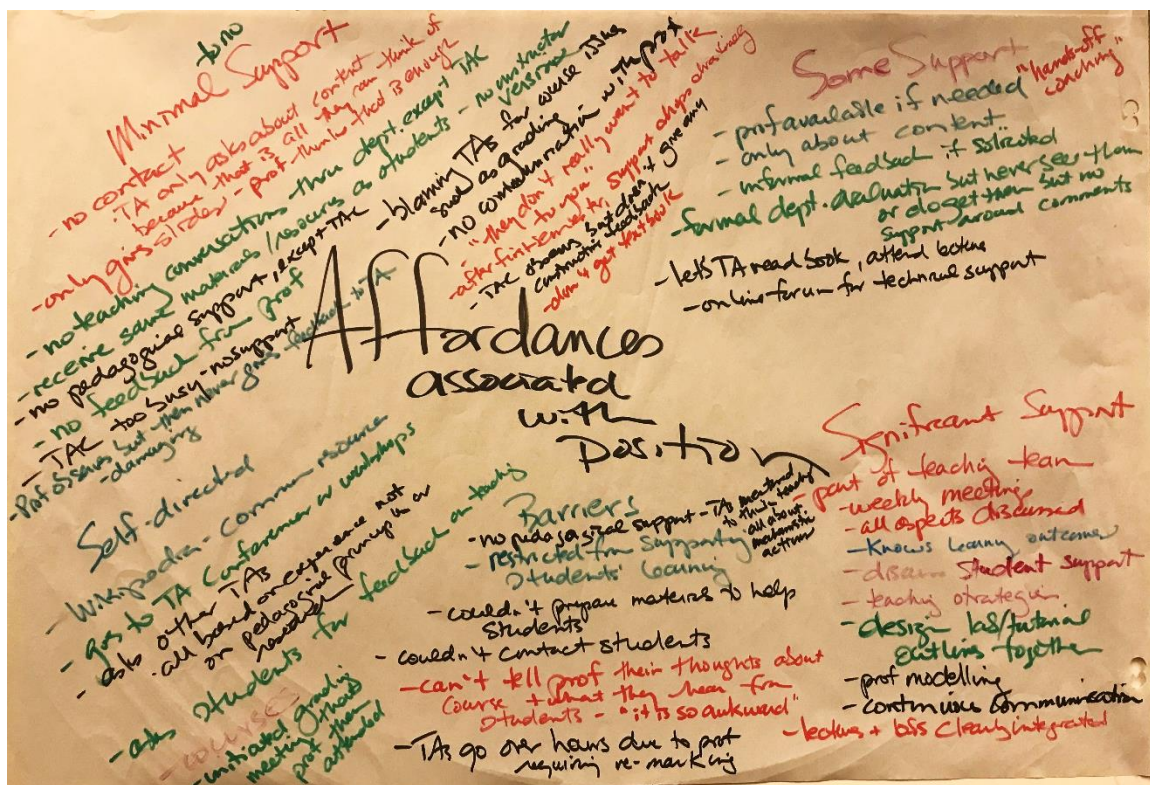 Affordances
associated
with
Position
to no
Minimal Support
- no contact
- TA only asks about content
because that is all they can think of
- only gives slides - prof thinks that is enough
- no teaching conversations thru dept. except TAC
- receive same materials/resources as students - no instructor
version
- no pedagogical support, except TAC
- no feedback from prof
- TAC too busy - no support
- Prof observes but then never gives feedback to TA
- damaging
- blaming TAs for course issues
such as grading
- no communication with prof
- "they don't really want to talk
to you"
- after first semester, support drops
- TAC observes but doesn't give any
constructive feedback
- don't get textbook
Some Support
"hands-off
coaching"
- prof available if needed
- only about content
- informal feedback if solicited
- formal dept. evaluation but never see them
or do get them but no
support around comments
- let's TA read book, attend lecture
- online forum for technical support
Self-directed
- Wikipedia - common resource
- goes to TA Conference or workshops
- asks other TAs
- all based on experience not
on pedagogical principles or
research
- asks students for feedback on teaching
- courses
- initiated grading
meeting that
prof then
attended
Barriers
- no pedagogical support - TAs
to think teaching
all about
action
- restricted from supporting
students' learning
- couldn't prepare materials to help
students
- couldn't contact students
- can't tell prof their thoughts about
course + what they hear from
students - "it is so awkward"
- TAs go over hours due to prof
requiring re-marking
Significant Support
- part of teaching team
- weekly meeting
- all aspects discussed
- knows learning outcomes
- discuss student support
- teaching strategies
- design lab/tutorial
outlines together
- prof modelling
- continuous communication
- lecture + labs clearly integrated